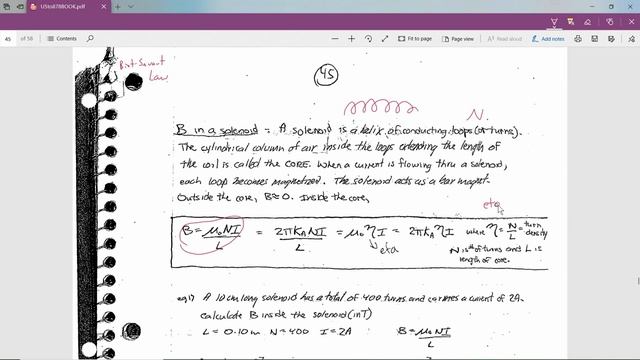 UStoll788OOK.pdf
45 of 58
Contents
Fit to page
Page view
Read aloud
Add notes
Biot-Savart
Law
45
N.
B in a solenoid = A solenoid is a helix of conducting loops (or turns).
The cylindrical column of air inside the loops extending the length of
the coil is called the CORE. When a current is flowing thru a solenoid,
each loop becomes magnetized. The solenoid acts as a bar magnet.
Outside the core, B≈0. Inside the core,
eta
B = μ₀NI/L = 2πk_A NI/L = μ₀ηI = 2πk_A ηI where η = N/L = turn density
eta
N is # of turns and L is
length of core.
eg17 A 10cm long solenoid has a total of 400 turns and carries a current of 2A.
calculate B inside the solenoid (in T)
L = 0.10m N = 400 I = 2A B = μ₀NI/L